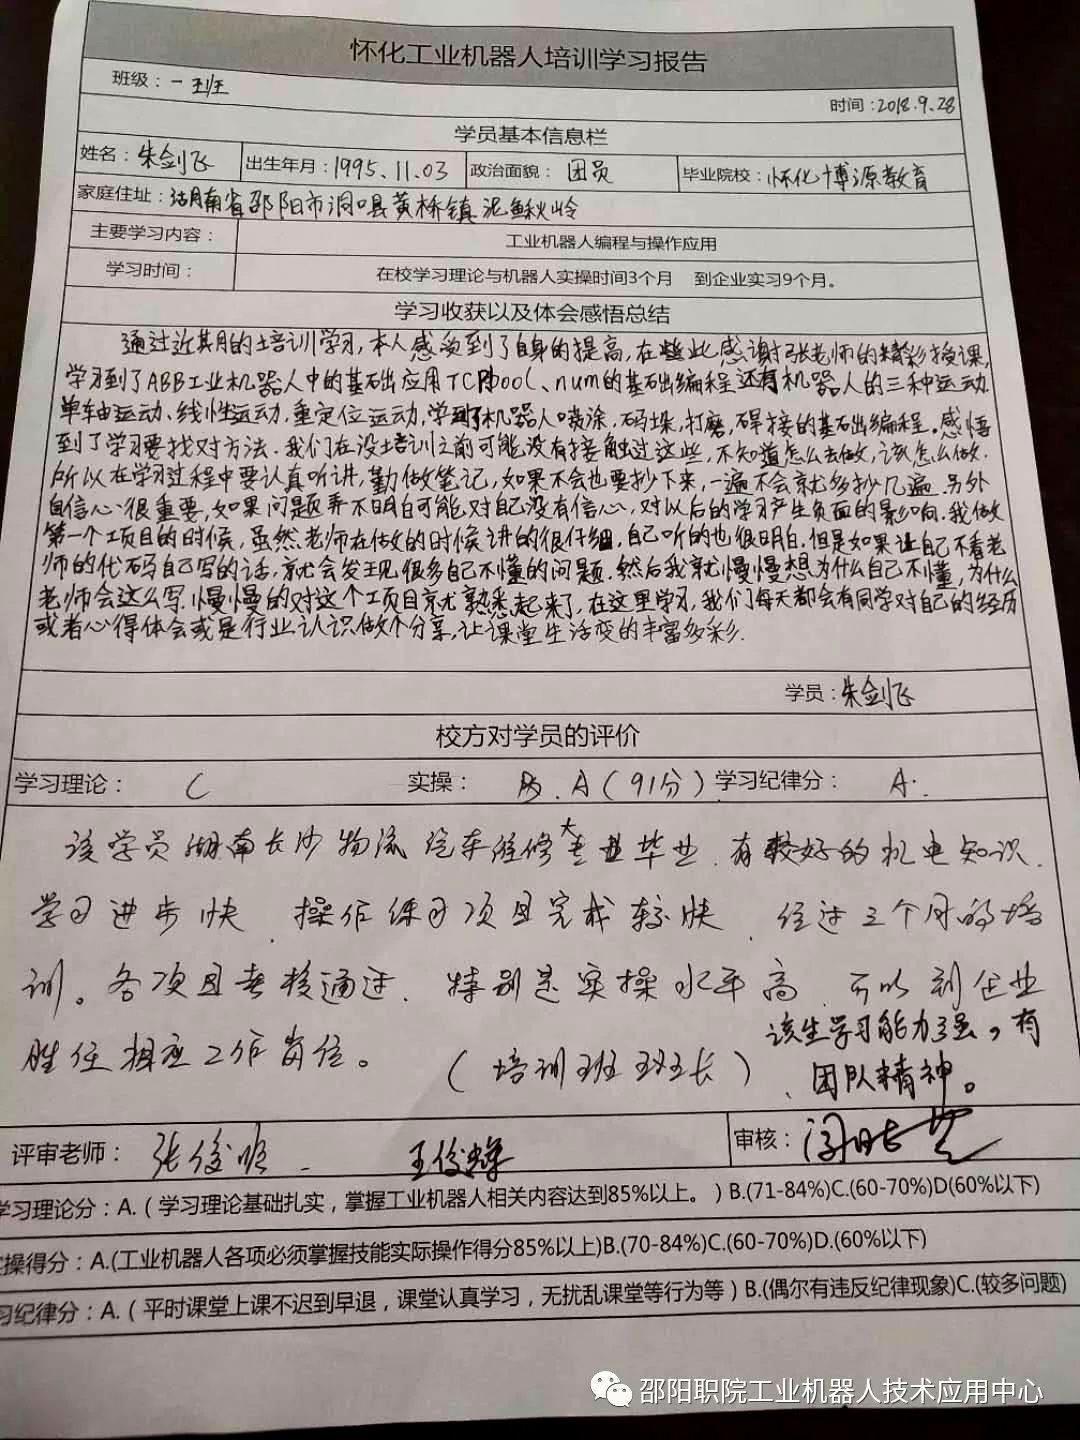 怀化工业机器人培训学习报告
班级：一班
时间：2018.9.28
学员基本信息栏
姓名：朱剑飞 出生年月：1995.11.03 政治面貌：团员 毕业院校：怀化博源教育
家庭住址：湖南省邵阳市洞口县黄桥镇泥鳅岭
主要学习内容： 工业机器人编程与操作应用
学习时间： 在校学习理论与机器人实操时间3个月 到企业实习9个月。
学习收获以及体会感悟总结
通过近期的培训学习，本人感受到了自身的提高，在此感谢张老师的精彩授课，
学习到了ABB工业机器人中的基础应用TCP、bool、num的基础编程还有机器人的三种运动
单轴运动、线性运动，重定位运动，学到了机器人喷涂，码垛，打磨，焊接的基础编程。感悟
到了学习要找对方法。我们在没培训之前可能没有接触过这些，不知道怎么去做，该怎么做.
所以在学习过程中要认真听讲，勤做笔记，如果不会也要抄下来，一遍不会就多抄几遍.另外
自信心很重要，如果问题弄不明白可能对自己没有信心，对以后的学习产生负面的影响.我做
第一个项目的时候，虽然老师在做的时候讲的很仔细，自己听的也很明白.但是如果让自己不看老
师的代码自己写的话，就会发现很多自己不懂的问题.然后我就慢慢想为什么自己不懂，为什么
老师会这么写.慢慢的对这个项目就熟悉起来了，在这里学习，我们每天都会有同学对自己的经历
或者心得体会或是行业认识做个分享，让课堂生活变的丰富多彩.
学员：朱剑飞
校方对学员的评价
学习理论： C 实操： B.A(91分) 学习纪律分： A.
该学员湖南长沙物流汽车维修大专业毕业.有较好的机电知识.
学习进步快.操作练习项目完成较快.经过三个月的培
训。各项目考核通过.特别是实操水平高.可以到企业
胜任相应工作岗位。（培训班班长）
该生学习能力强，有
团队精神。
评审老师： 张俊 王俊 审核：
学习理论分：A.（学习理论基础扎实，掌握工业机器人相关内容达到85%以上。）B.(71-84%)C.(60-70%)D(60%以下)
操得分：A.(工业机器人各项必须掌握技能实际操作得分85%以上)B.(70-84%)C.(60-70%)D.(60%以下)
习纪律分：A.（平时课堂上课不迟到早退，课堂认真学习，无扰乱课堂等行为等）B.(偶尔有违反纪律现象)C.(较多问题)
邵阳职院工业机器人技术应用中心